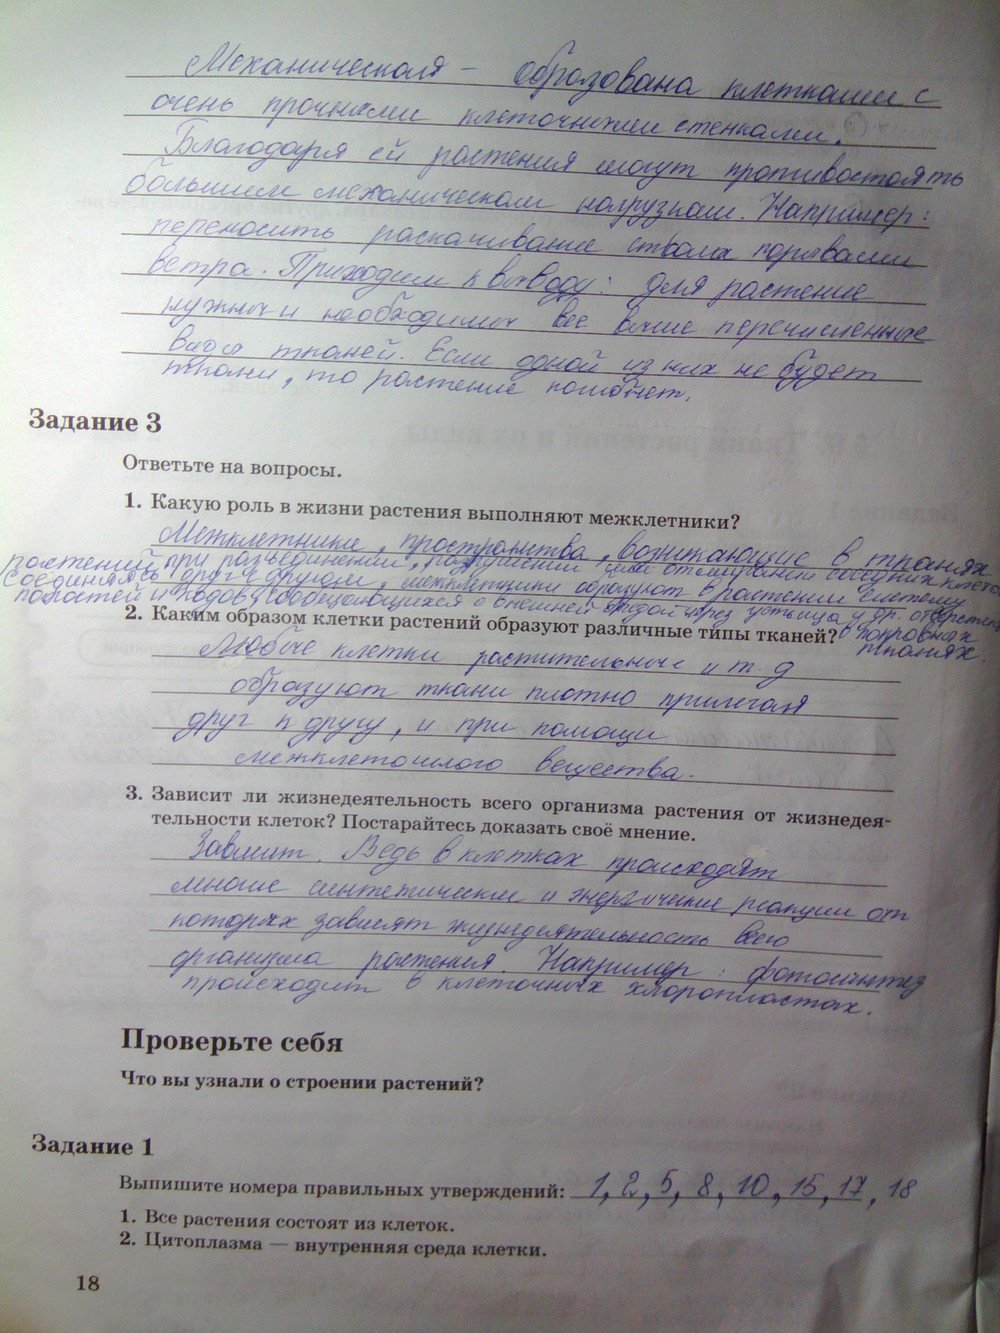 Механическая – образована клетками с
очень прочными клеточными стенками.
Благодаря ей растения могут противостоять
большим механическим нагрузкам. Например:
переносить раскачивание ствола порывами
ветра. Приходим к выводу: для растение
нужны и необходимы все выше перечисленные
виды тканей. Если одной из них не будет
ткани, то растение погибнет.
Задание 3
Ответьте на вопросы.
1. Какую роль в жизни растения выполняют межклетники?
Межклетники, пространства, возникающие в тканях
растений при разъединении, разрушении или отмирании соседних клеток
Соединяясь друг с другом, межклетники образуют в растении систему
полостей и ходов, сообщающихся с внешней средой через устьица и др. отверстия
в покровных
тканях.
2. Каким образом клетки растений образуют различные типы тканей?
Любые клетки растительные и т.д
образуют ткани плотно прилегая
друг к другу, и при помощи
межклеточного вещества.
3. Зависит ли жизнедеятельность всего организма растения от жизнедея-
тельности клеток? Постарайтесь доказать своё мнение.
Зависит. Ведь в клетках происходят
многие синтетические и реакции от
которых зависят жизнедеятельность всего
организма растения. Например: фотосинтез
происходит в клеточных хлоропластах.
Проверьте себя
Что вы узнали о строении растений?
Задание 1
Выпишите номера правильных утверждений: 1, 2, 5, 8, 10, 15, 17, 18
1. Все растения состоят из клеток.
2. Цитоплазма — внутренняя среда клетки.
18